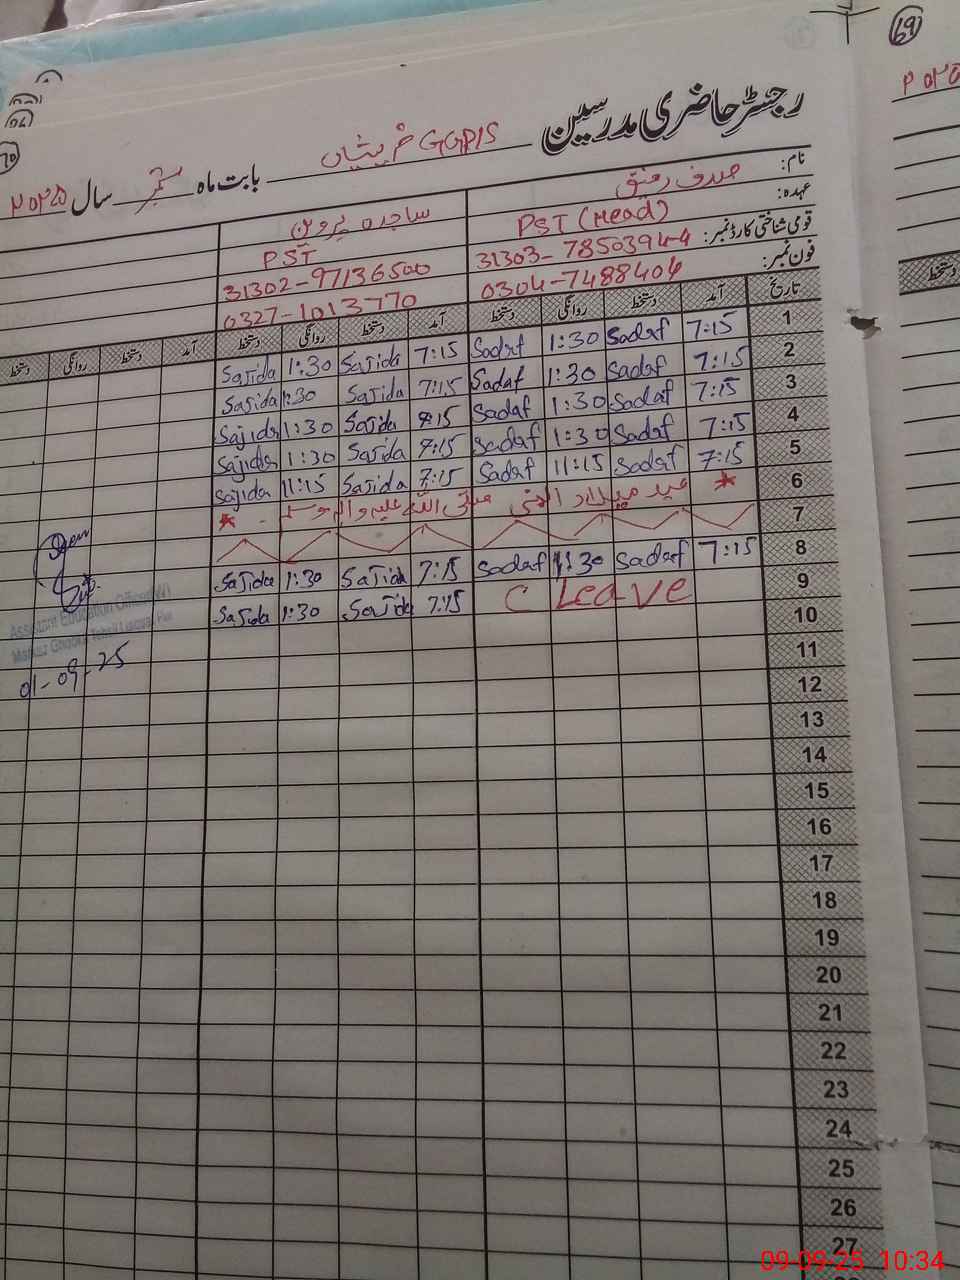 69
رجسٹر حاضری مدرسین
GGPS خریشاں بابت ماہ ستمبر سال ۲۰۲۵
نام: صدف رفیق ساجدہ پروین
عہدہ: PST (Head) PST
قومی شناختی کارڈ نمبر: 31303-7850394-4 31302-97136500
فون نمبر: 0304-7488404 0327-1013770
تاریخ آمد دستخط روانگی دستخط آمد دستخط روانگی دستخط آمد دستخط روانگی دستخط
1 7:15 Sadaf 1:30 Sadaf 7:15 Sajida 1:30 Sajida
2 7:15 Sadaf 1:30 Sadaf 7:15 Sajida 1:30 Sajida
3 7:15 Sadaf 1:30 Sadaf 7:15 Sajida 1:30 Sajida
4 7:15 Sadaf 1:30 Sadaf 7:15 Sajida 1:30 Sajida
5 7:15 Sadaf 11:15 Sadaf 7:15 Sajida 11:15 Sajida
6 عید میلاد النبی صلی اللہ علیہ و آلہ وسلم
7
8 7:15 Sadaf 1:30 Sadaf 7:15 Sajida 1:30 Sajida
9 C Leave 7:15 Sajida 1:30 Sajida
10
11
12
13
14
15
16
17
18
19
20
21
22
23
24
25
26
27
Assistant Education Officer (W)
01-09-25
09-09-25 10:34